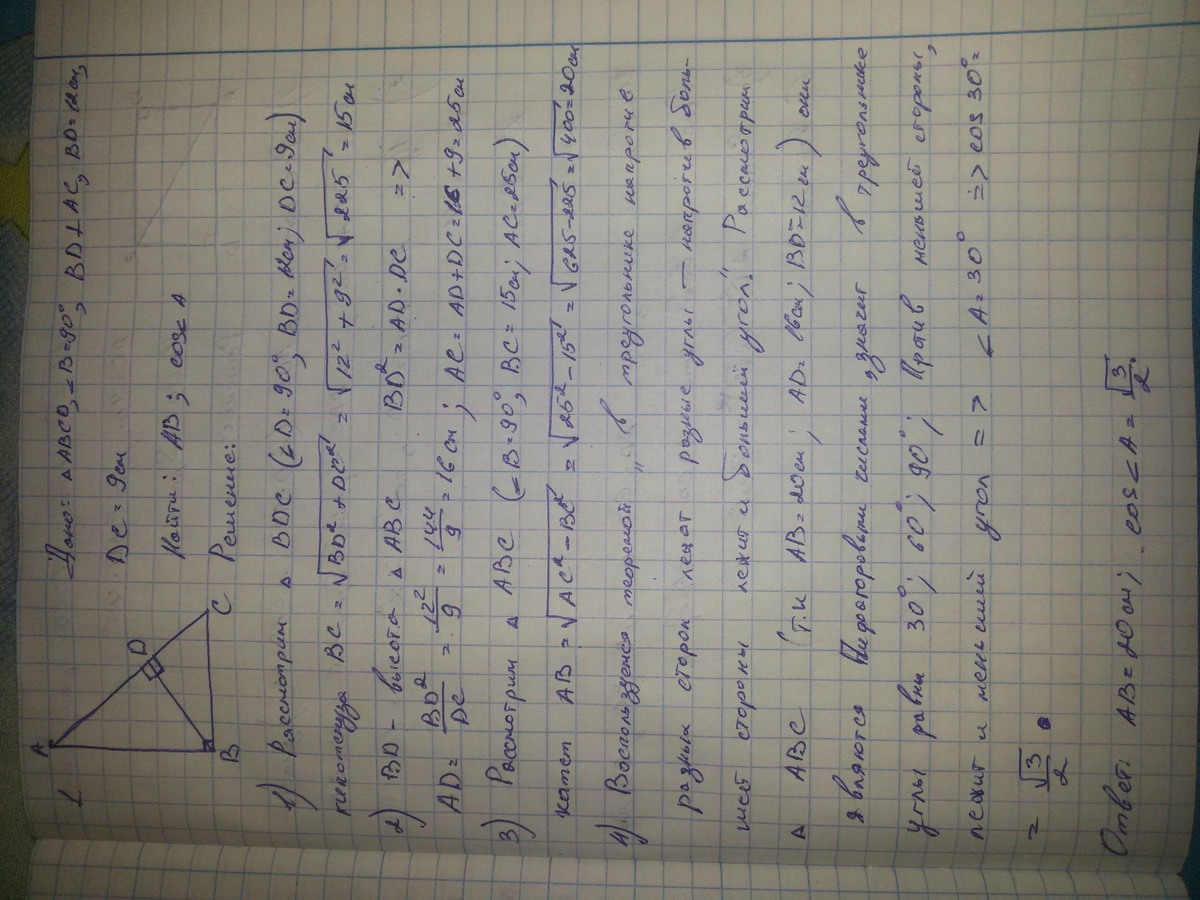 1.
A
D
B
C
Дано: △ ABCD, ∠B=90°, BD⊥AC, BD=12см,
DC=9см
Найти: AB; cos∠A
Решение:
1) Рассмотрим △ BDC (∠D=90°, BD=12см; DC=9см)
гипотенуза BC = √BD²+DC² = √12²+9² = √225 = 15см
2) BD - высота △ ABC BD² = AD·DC =>
AD = BD²/DC = 12²/9 = 144/9 = 16см; AC = AD+DC = 16+9 = 25см
3) Рассмотрим △ ABC (∠B=90°, BC=15см; AC=25см)
катет AB = √AC²-BC² = √25²-15² = √625-225 = √400 = 20см
4) Воспользуемся теоремой „в треугольнике напротив
разных сторон лежат разные углы — напротив боль-
шей стороны лежит и больший угол." Рассмотрим
△ ABC (т.к AB=20см; AD=16см; BD=12см) они
являются Пифагоровыми числами, значит в треугольнике
углы равны 30°; 60°; 90°; Против меньшей стороны,
лежит и меньший угол => ∠A=30° => cos 30° =
= √3/2.
Ответ: AB=20см; cos∠A = √3/2.